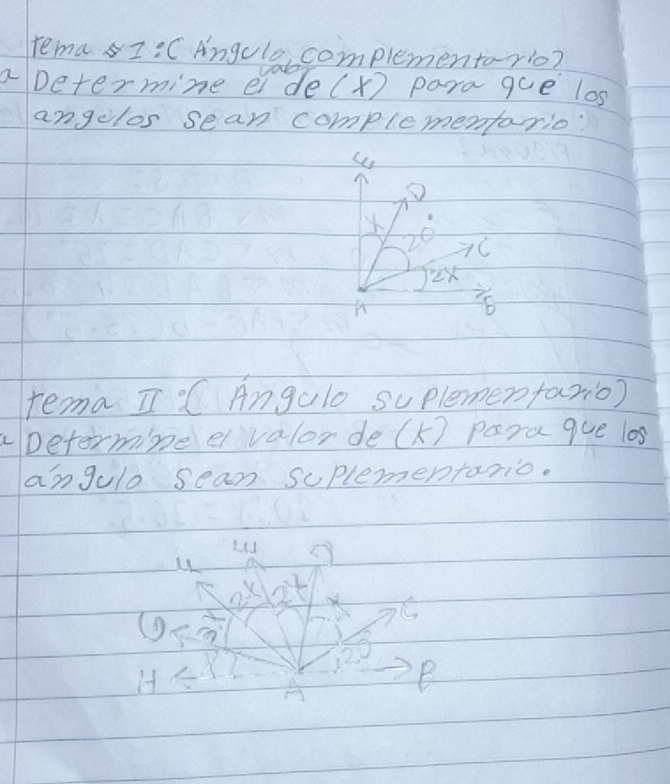 tema 1:( Ángulo complementario)
a Determine el valor de (x) para que los
angulos sean complementario:
E
D
x
20°
C
2x
A
B
tema II :( Ángulo suplementario)
a Determine el valor de (x) para que los
ángulo sean suplementario.
F E D
2x 2x
G x C
3x
x 20
H A B